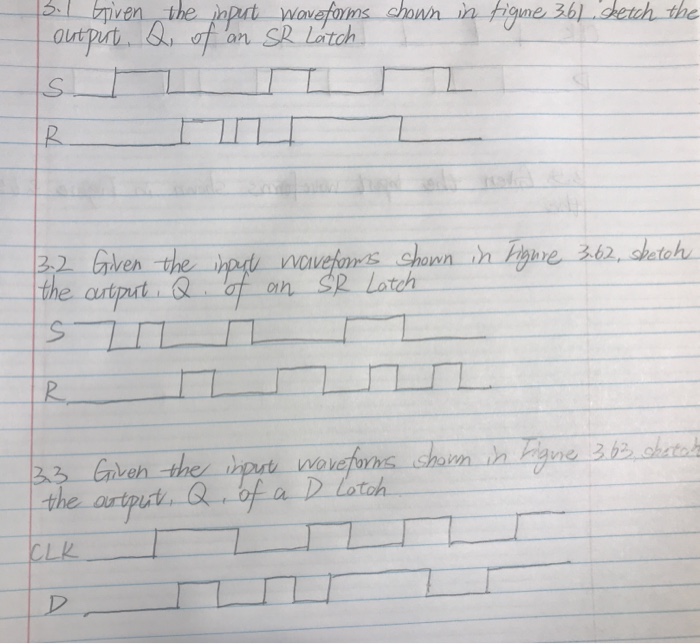 3.1 Given the input waveforms shown in figure 3.61, sketch the
output, Q, of an SR Latch
S
R
3.2 Given the input waveforms shown in Figure 3.62, sketch
the output, Q, of an SR Latch
S
R
3.3 Given the input waveforms shown in Figure 3.63, sketch
the output, Q, of a D Latch
CLK
D